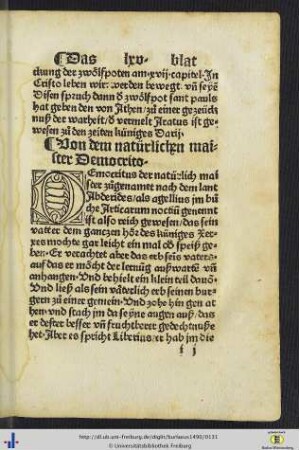 ¶Das lxv· blat
tkung der zwölfpoten am·xvij·capitel·In
Cristo leben wir: werden bewegt. vñ seyẽ
Disen spruch dann ð zwölfpot sant pauls
hat geben den von Athen/ zů einer gezeück
nuß der warheit/ ð vermelt Aratus ist ge-
wesen zů den zeiten küniges Darij·
¶Von dem natürlichen mai-
ster Democrito·
DEmocritus der natürlich mai
ster zůgenannt nach dem lant
Abderides/ als agellius jm bů
che Articarum noctiũ genennt
ist also reich gewesen/ das sein
vatter dem ganczen hör des küniges Xer-
xes mochte gar leicht ein mal ð speiß ge-
ben· Er verachtet aber das erb seïs vaters
auf das er möcht der lernũg aufwartẽ vñ
anhangen· Vnd behielt ein klein teil dauõ·
Vnd ließ als sein våterlich erb seinen bur-
gern zů einer gemein· Vnd zohe hin gen at
hen· vnd stach jm da seyne augen auß/ das
er dester besser vñ fruchtberer gedechtnuße
het· Aber es spricht Liberius/ er hab jm die
i j
http://dl.ub.uni-freiburg.de/diglit/burlaeus1490/0131
© Universitätsbibliothek Freiburg